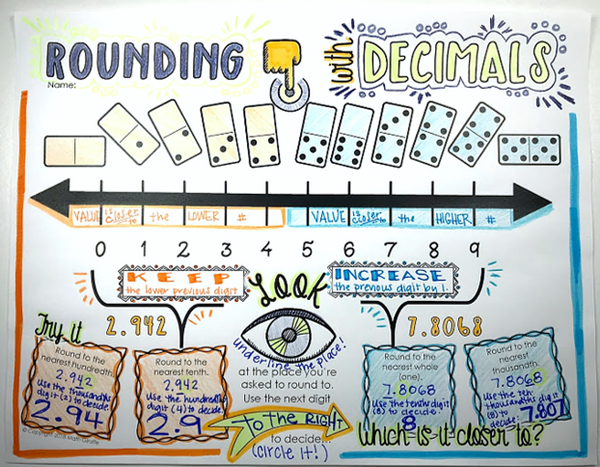 ROUNDING with DECIMALS
Name:
VALUE is closer to the LOWER #
VALUE is closer to the HIGHER #
0 1 2 3 4 5 6 7 8 9
KEEP
the lower previous digit
INCREASE
the previous digit by 1.
LOOK
Try it
2.942
7.8068
Round to the
nearest hundredth.
2.942
Use the thousandths
digit (2) to decide.
2.94
Round to the
nearest tenth.
2.942
Use the hundredths
digit (4) to decide.
2.9
underline the place!
at the place you're
asked to round to.
Use the next digit
TO THE RIGHT
to decide...
(circle it!)
Round to the
nearest whole
(one).
7.8068
Use the tenths digit
(8) to decide.
8
Round to the
nearest
thousandth.
7.8068
Use the ten
thousandths digit
(8) to
decide. 7.807
Which is it closer to?
© Copyright 2018 Math Giraffe